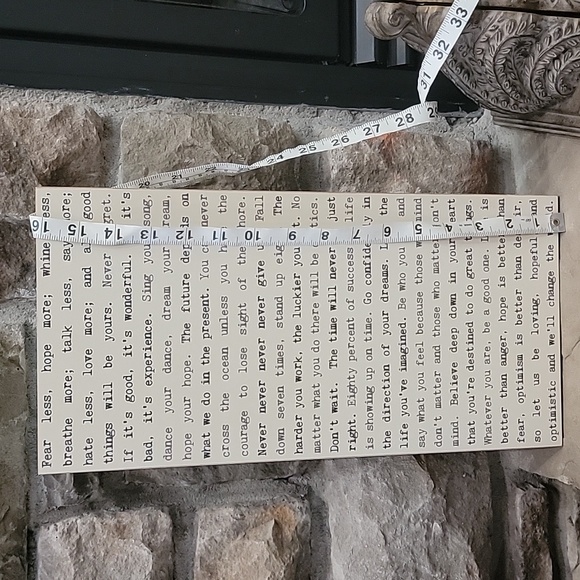 Fear less, hope more; whine less,
breathe more; talk less, say more;
hate less, love more; and all good
things will be yours. Never regret.
If it's good, it's wonderful. If it's
bad, it's experience. Sing your song,
dance your dance, dream your dream,
hope your hope. The future depends on
what we do in the present. You never
cross the ocean unless you the
courage to lose sight of the shore.
Never never never give Fall
down seven times, stand up eig The
harder you work, the luckier you t. No
matter what you do there will be tics.
Don't wait. The time will never just
right. Eighty percent of success life
is showing up on time. Go confid y in
the direction of your dreams. L the
life you've imagined. Be who you and
say what you feel because those
don't matter and those who matter don't
mind. Believe deep down in your heart
that you're destined to do great things.
Whatever you are, be a good one. is
better than anger, hope is better than
fear, optimism is better than despair,
so let us be loving, hopeful and
optimistic and we'll change the
16 15 14 13 12 11 10 9 8 7 6 5 4 3 2 1
20 21 24 25 26 27 28
31 32 33